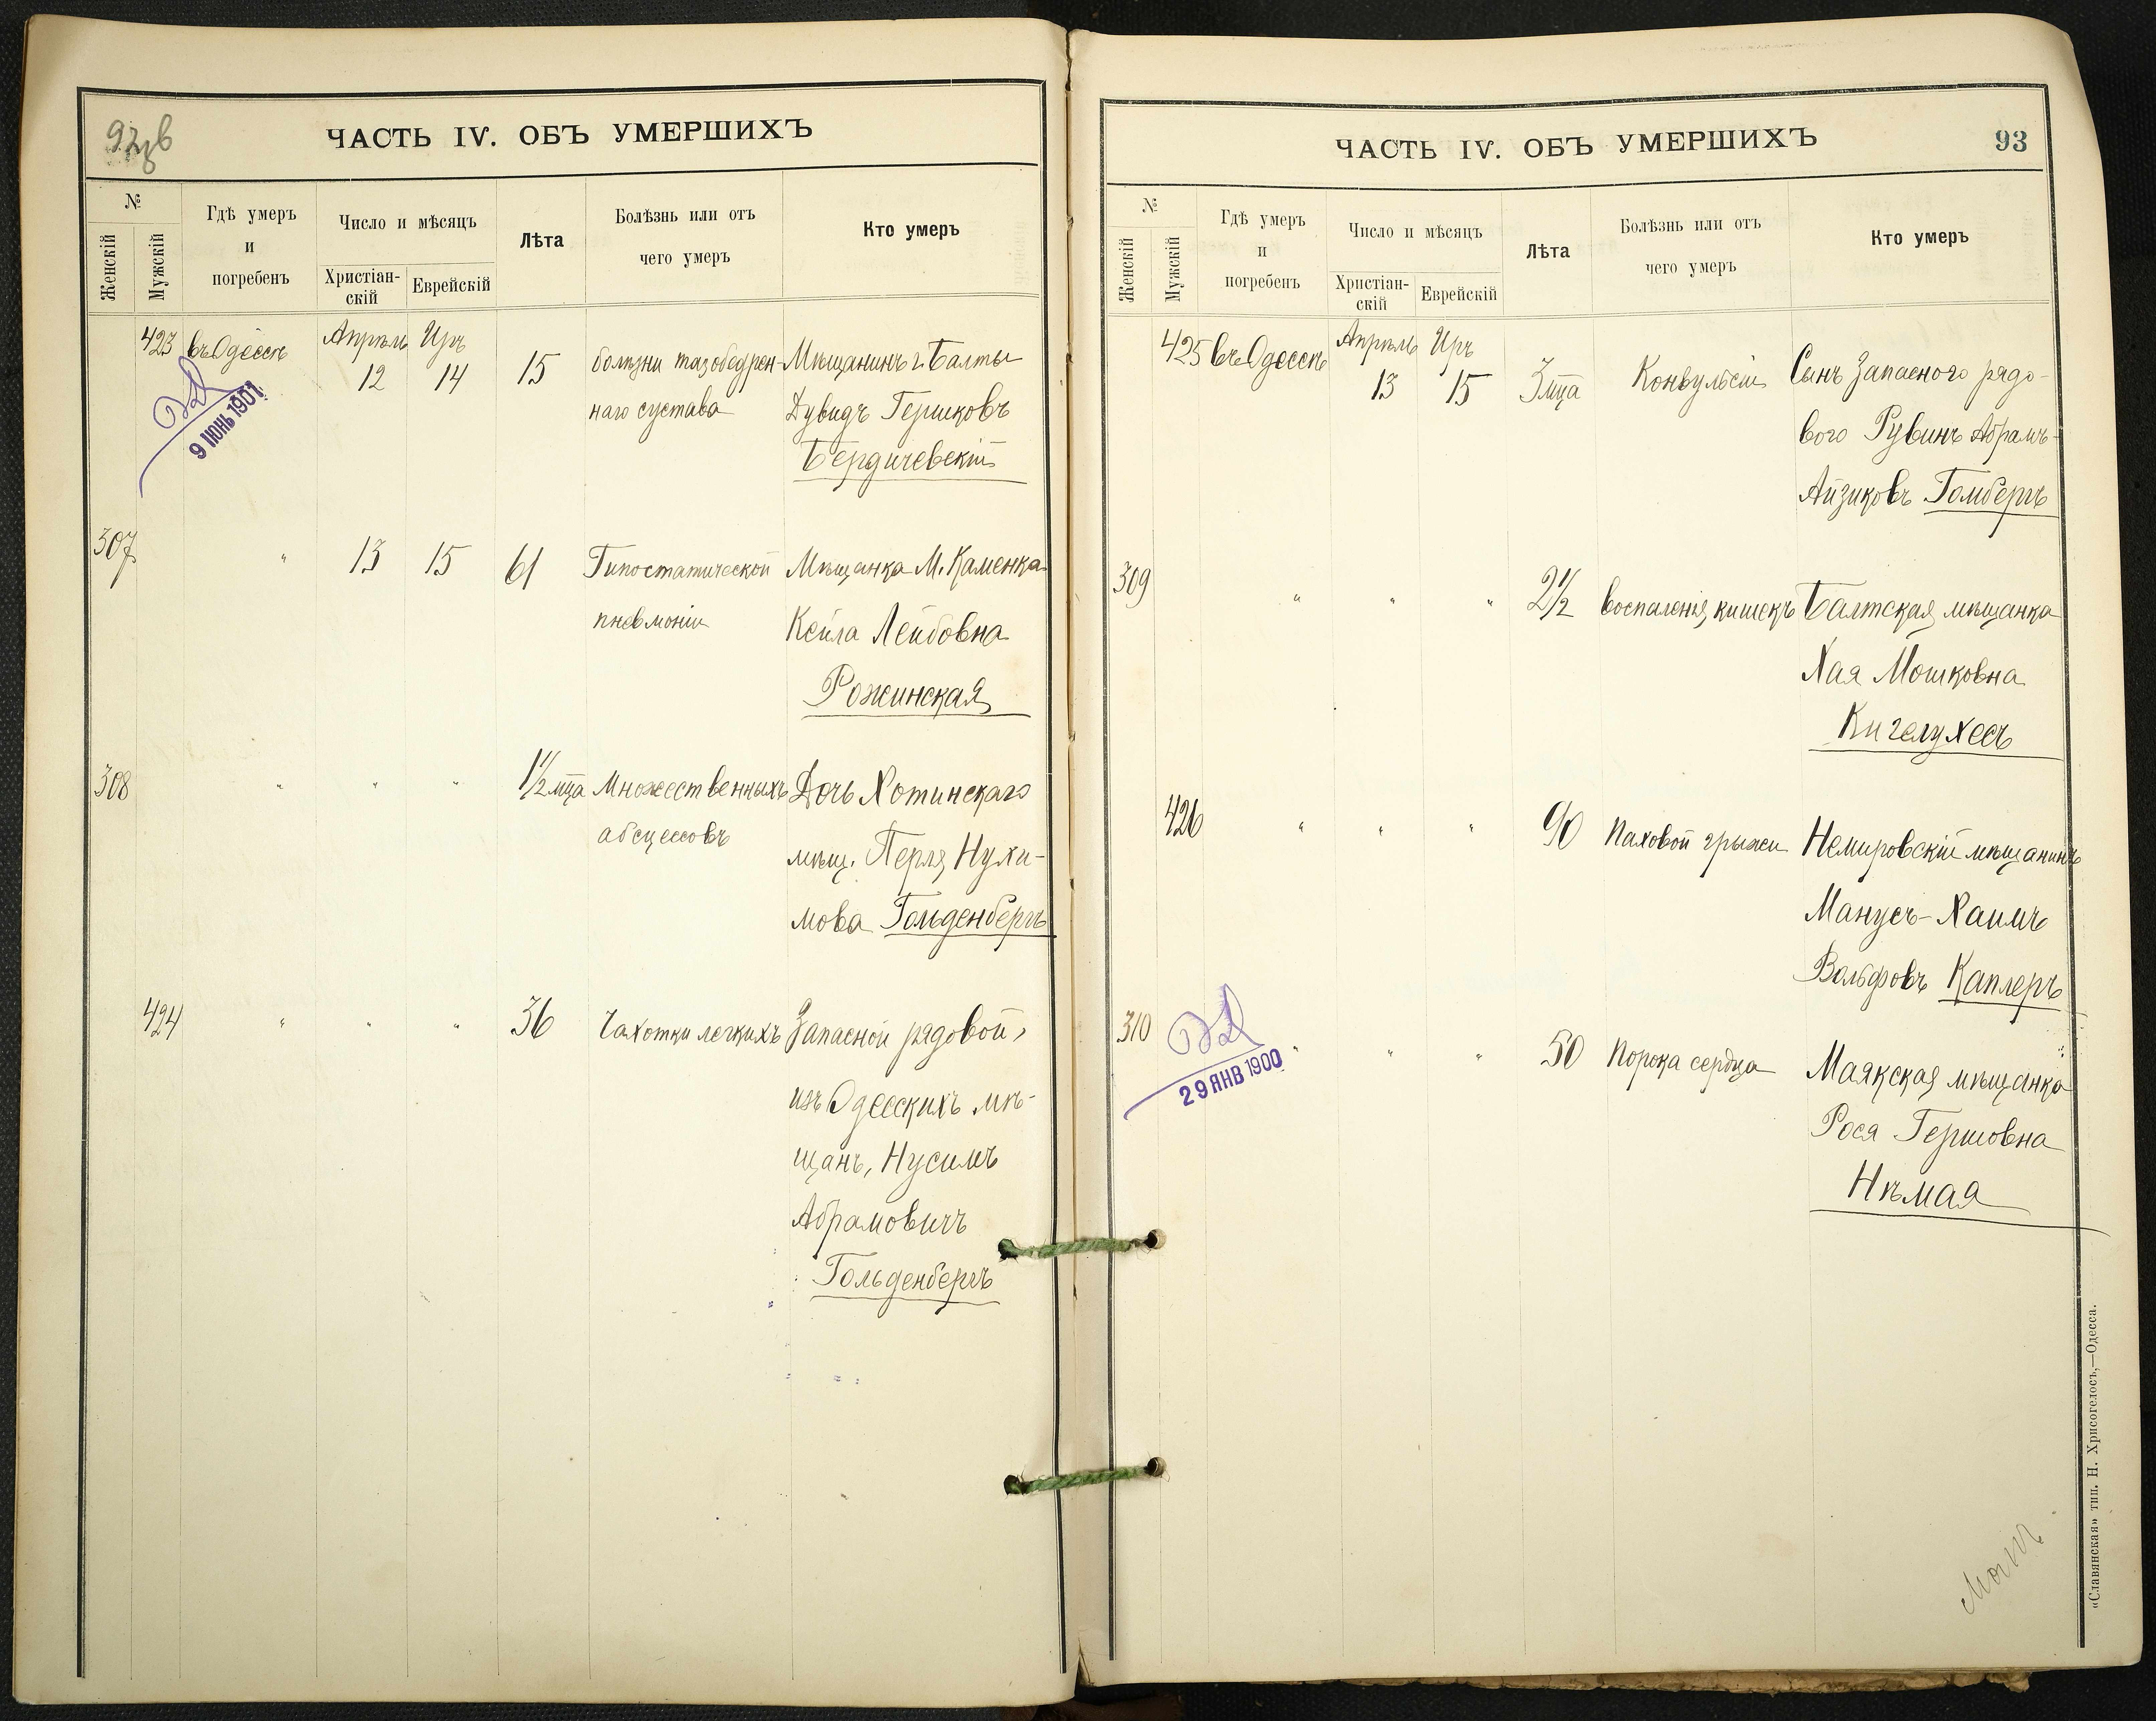 92
ЧАСТЬ IV. ОБЪ УМЕРШИХЪ
№
Женскій
Мужскій
Гдѣ умеръ
и
погребенъ
Число и мѣсяцъ
Христіан-
скій
Еврейскій
Лѣта
Болѣзнь или отъ
чего умеръ
Кто умеръ
423 въ Одессѣ Апрѣль Иръ
12 14 15 болѣзни тазобедрен- Мѣщанинъ г. Балты
наго сустава Дувидъ Гершковъ
Бердичевскій
9 ІЮНЬ 1901
307 " 13 15 61 Гипостатической Мѣщанка М. Каменка
пневмоніи Кейла Лейбовна
Рожинская
308 " " " 1½ мца Множественныхъ Дочь Хотинскаго
абсцессовъ мѣщ. Перля Нухи-
мова Гольденбергъ
424 " " " 36 Чахотки легкихъ Запасной рядовой,
изъ Одесскихъ мѣ-
щанъ, Нусимъ
Абрамовичъ
Гольденбергъ
ЧАСТЬ IV. ОБЪ УМЕРШИХЪ
93
№
Женскій
Мужскій
Гдѣ умеръ
и
погребенъ
Число и мѣсяцъ
Христіан-
скій
Еврейскій
Лѣта
Болѣзнь или отъ
чего умеръ
Кто умеръ
425 въ Одессѣ Апрѣль Иръ
13 15 3 мца Конвульсіи Сынъ Запасного рядо-
вого Рувинъ Абрамъ-
Айзиковъ Гомбергъ
309 " " " 2½ воспаленія кишекъ Балтская мѣщанка
Хая Мошковна
Кигелухесъ
426 " " " 90 Паховой грыжи Немировскій мѣщанинъ
Манусъ-Хаимъ
Вольфовъ Каплеръ
310 " " " 50 Порока сердца Маякская мѣщанка
Рося Гершовна
Нѣмая
29 ЯНВ 1900
«Славянская» тип. Н. Хрисогелосъ,—Одесса.